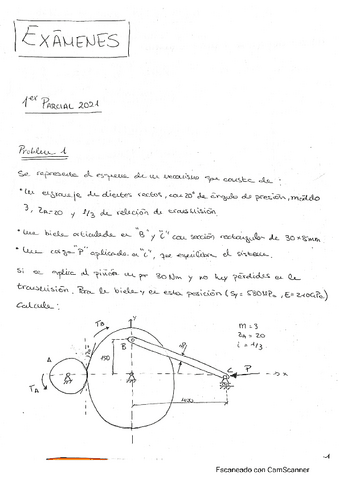 EXÁMENES
1er PARCIAL 2021
Problema 1
Se representa el esquema de un mecanismo que consta de:
* Un engranaje de dientes rectos, con 20° de ángulo de presión, módulo
3, ZA=20 y 1/3 de relación de transmisión.
* Una biela articulada en "B" y "C" con sección rectangular de 30×8mm
* Una carga "P" aplicada en "C", que equilibra el sistema.
Si se aplica al piñón un par 30Nm y no hay pérdidas en la
transmisión. Para la biela y en esta posición (Sy=580MPa, E=210GPa)
Calcula:
TB
Y
m = 3
ZA = 20
i = 1/3
B
A
150
C
P
X
TA
400
1
Escaneado con CamScanner